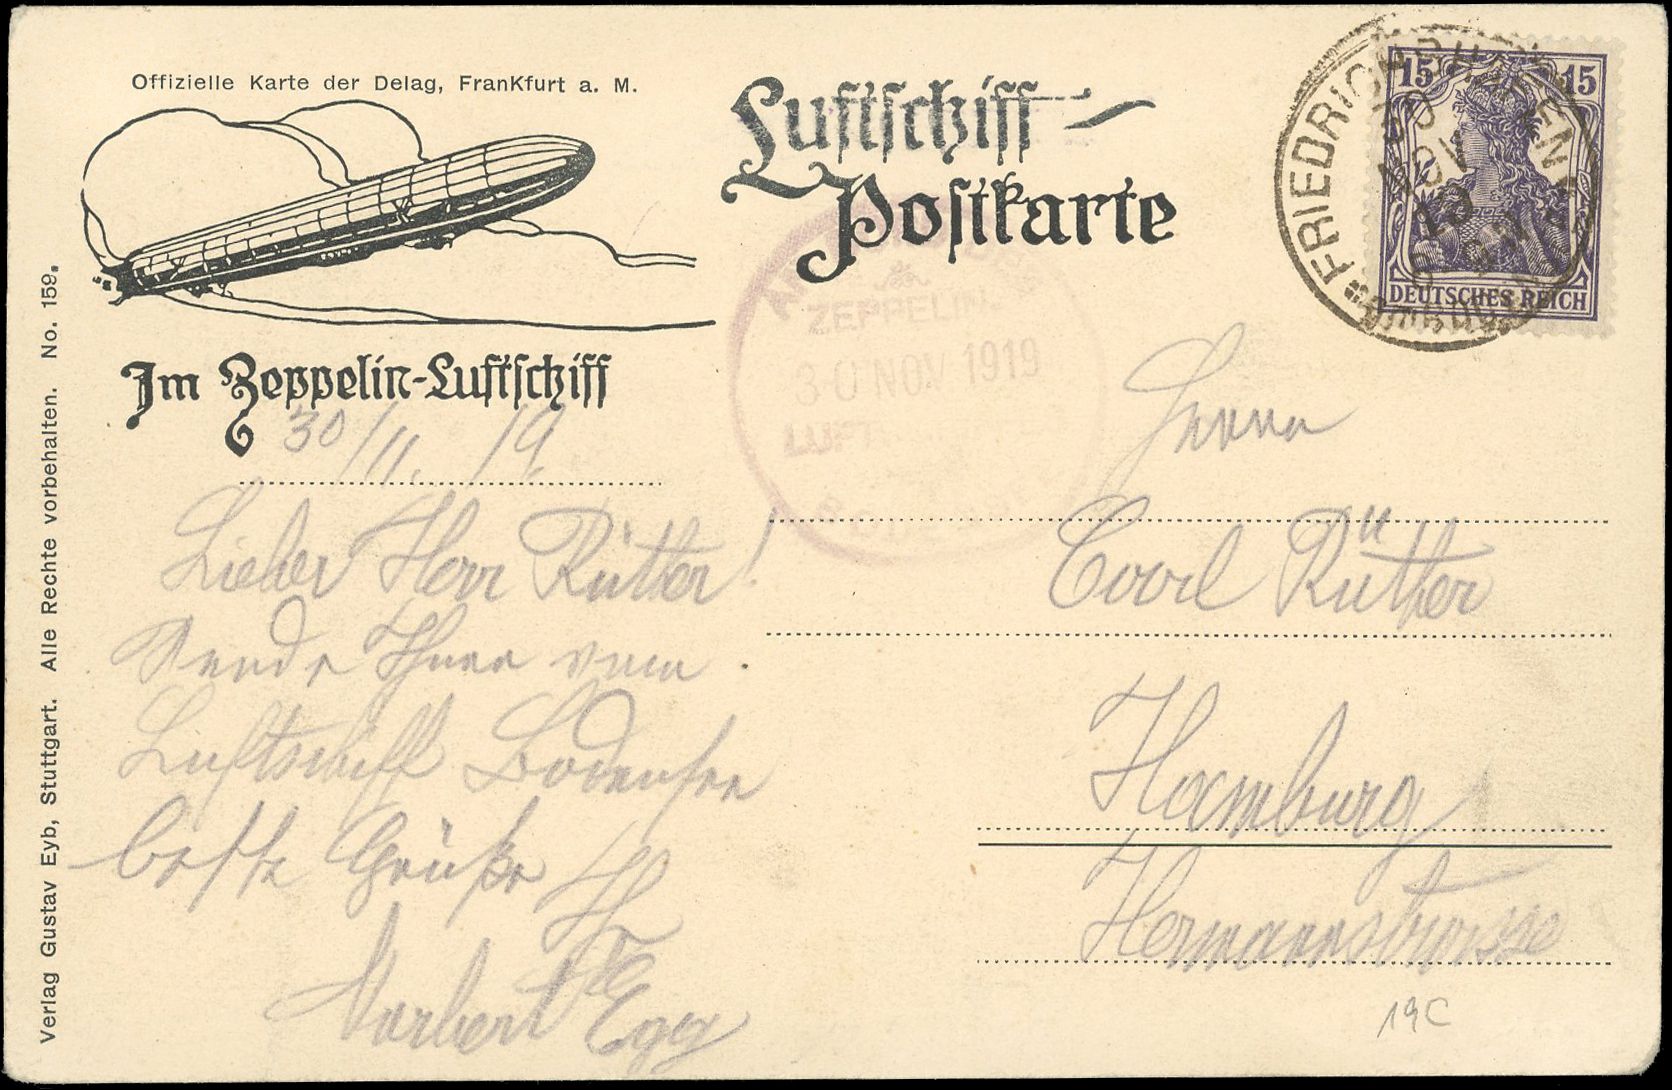 Offizielle Karte der Delag, Frankfurt a. M.
Luftschiff-
Postkarte
FRIEDRICHSHAFEN
30 NOV 19
15 15
DEUTSCHES REICH
ZEPPELIN-
30 NOV 1919
LUFT
Im Zeppelin-Luftschiff
30/11. 19.
Lieber Herr Rütter!
Sende Ihnen vom
Luftschiff Bodensee
beste Grüße
Ihr
Norbert Egger
Herrn
Coord Rüther
Hamburg
Hermannstrasse
19C
Verlag Gustav Eyb, Stuttgart. Alle Rechte vorbehalten. No. 159.